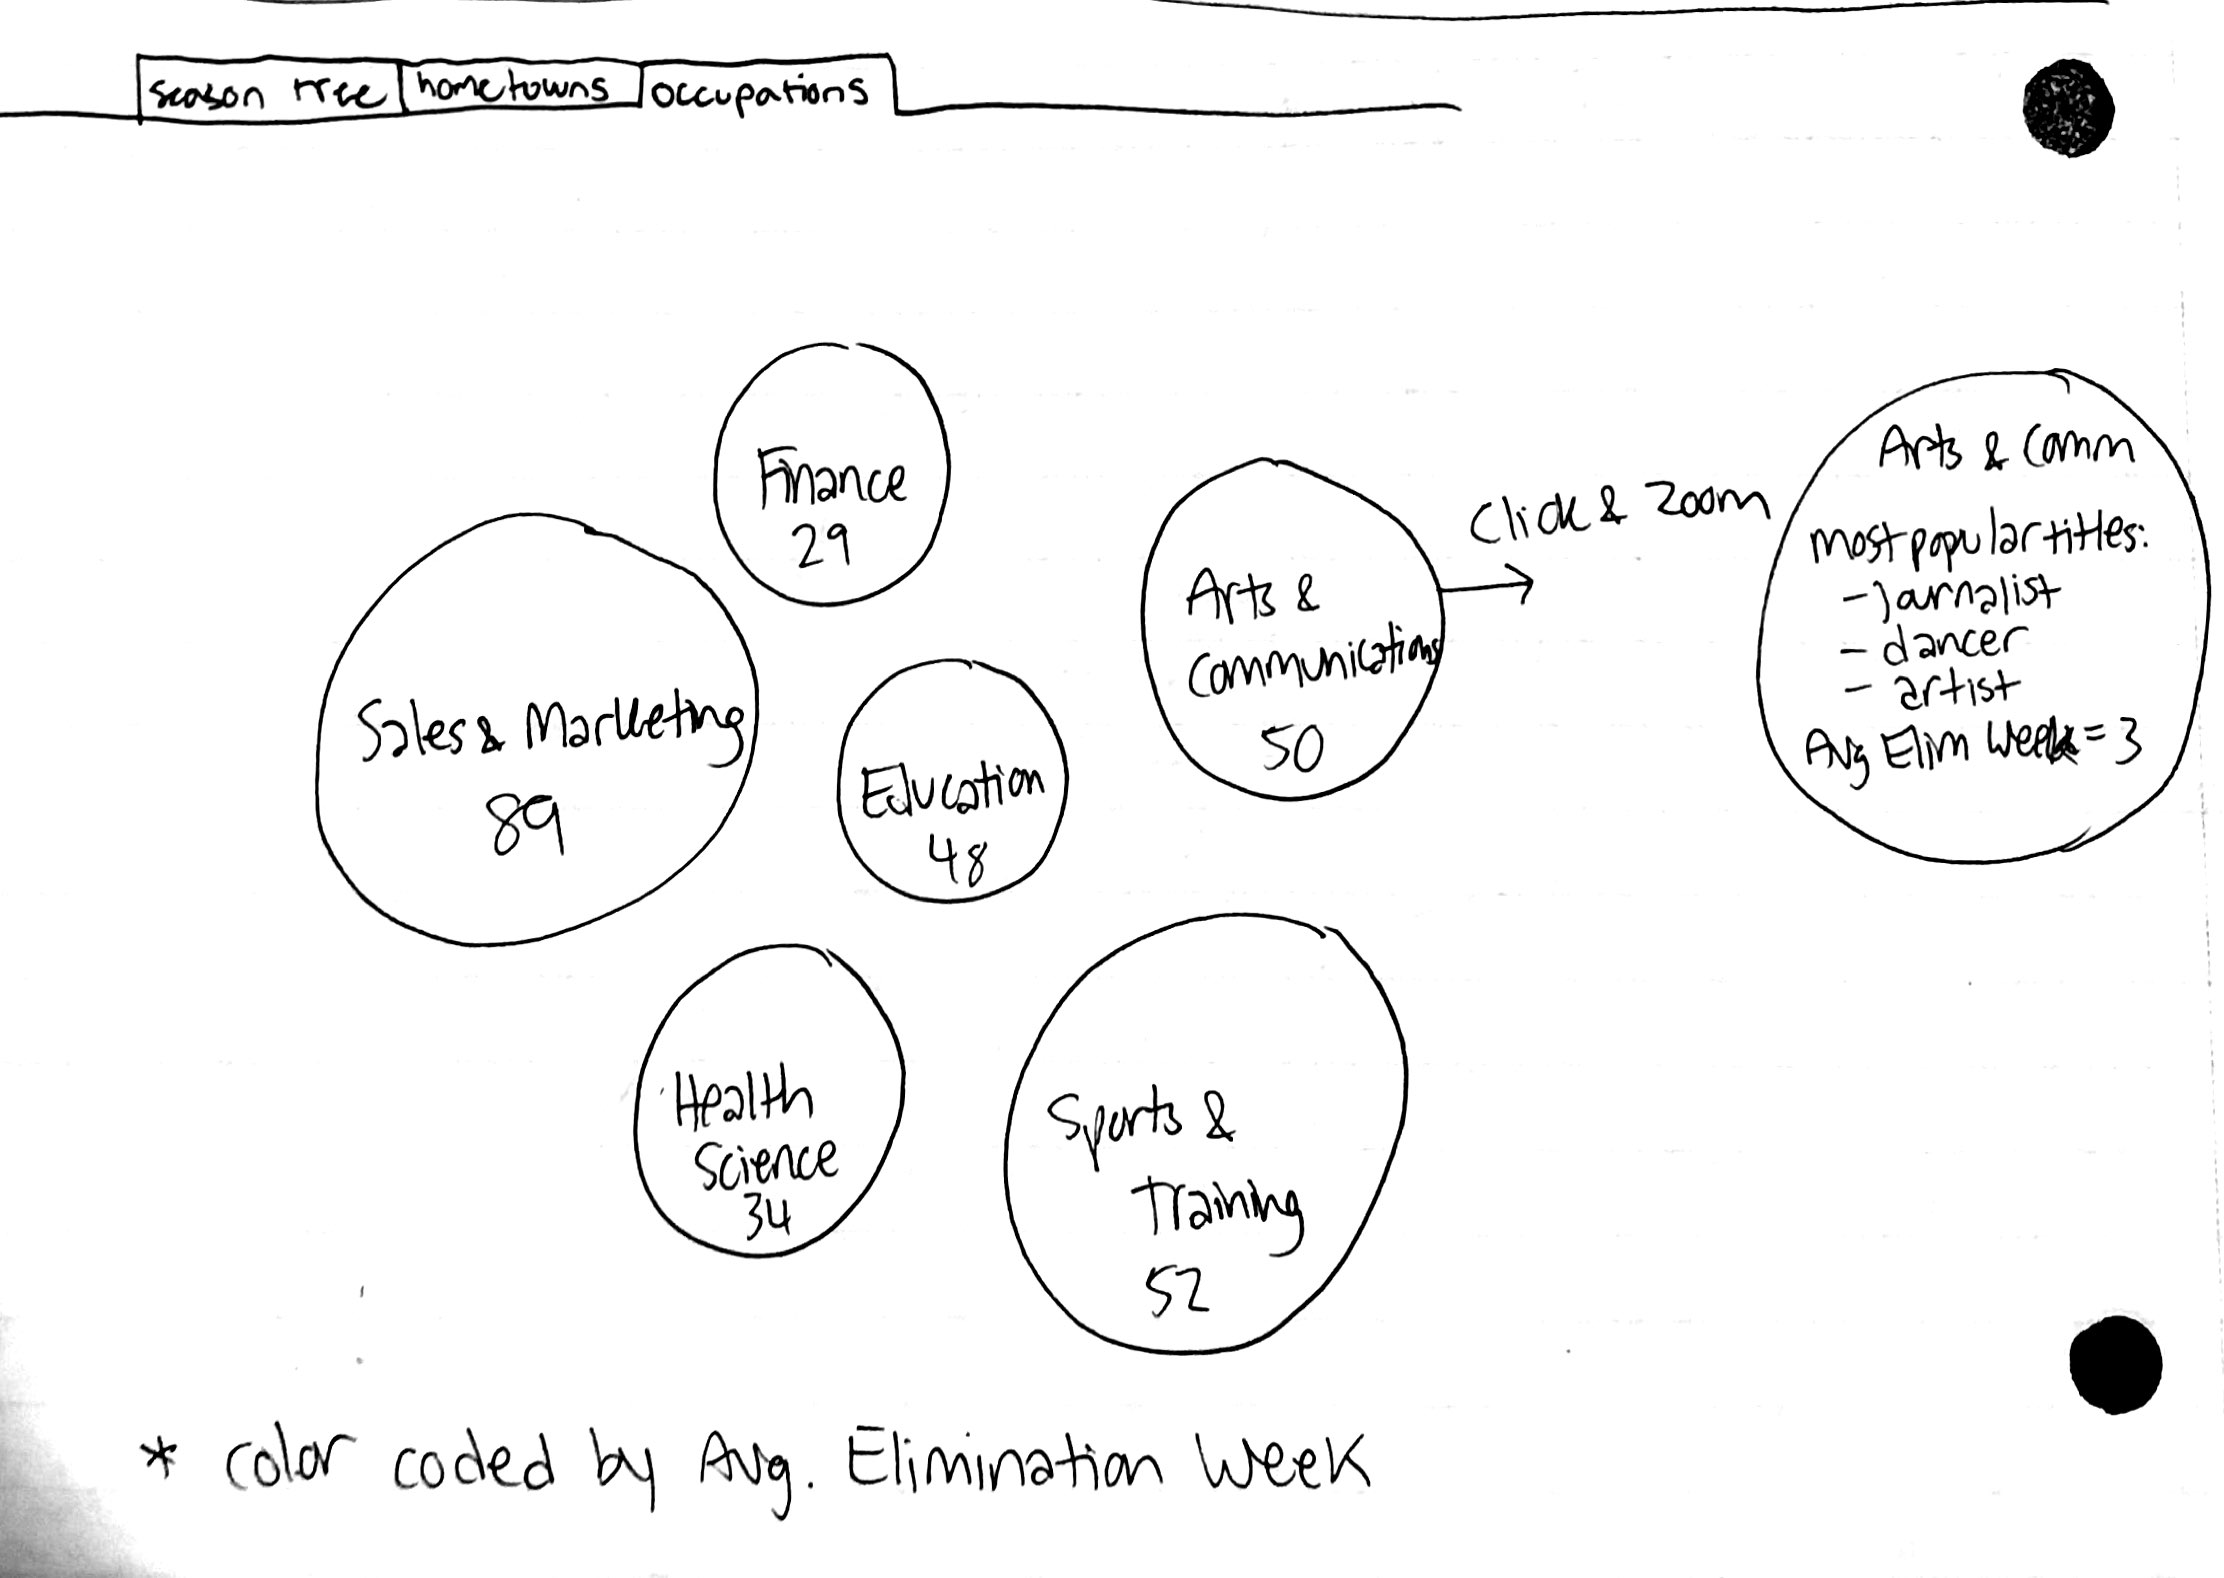 season tree
hometowns
occupations
Finance
29
Sales & Marketing
89
Education
48
Arts &
Communications
50
Click & Zoom
Arts & Comm
most popular titles:
- journalist
- dancer
- artist
Avg Elim Week = 3
Health
Science
34
Sports &
Training
52
* color coded by Avg. Elimination Week